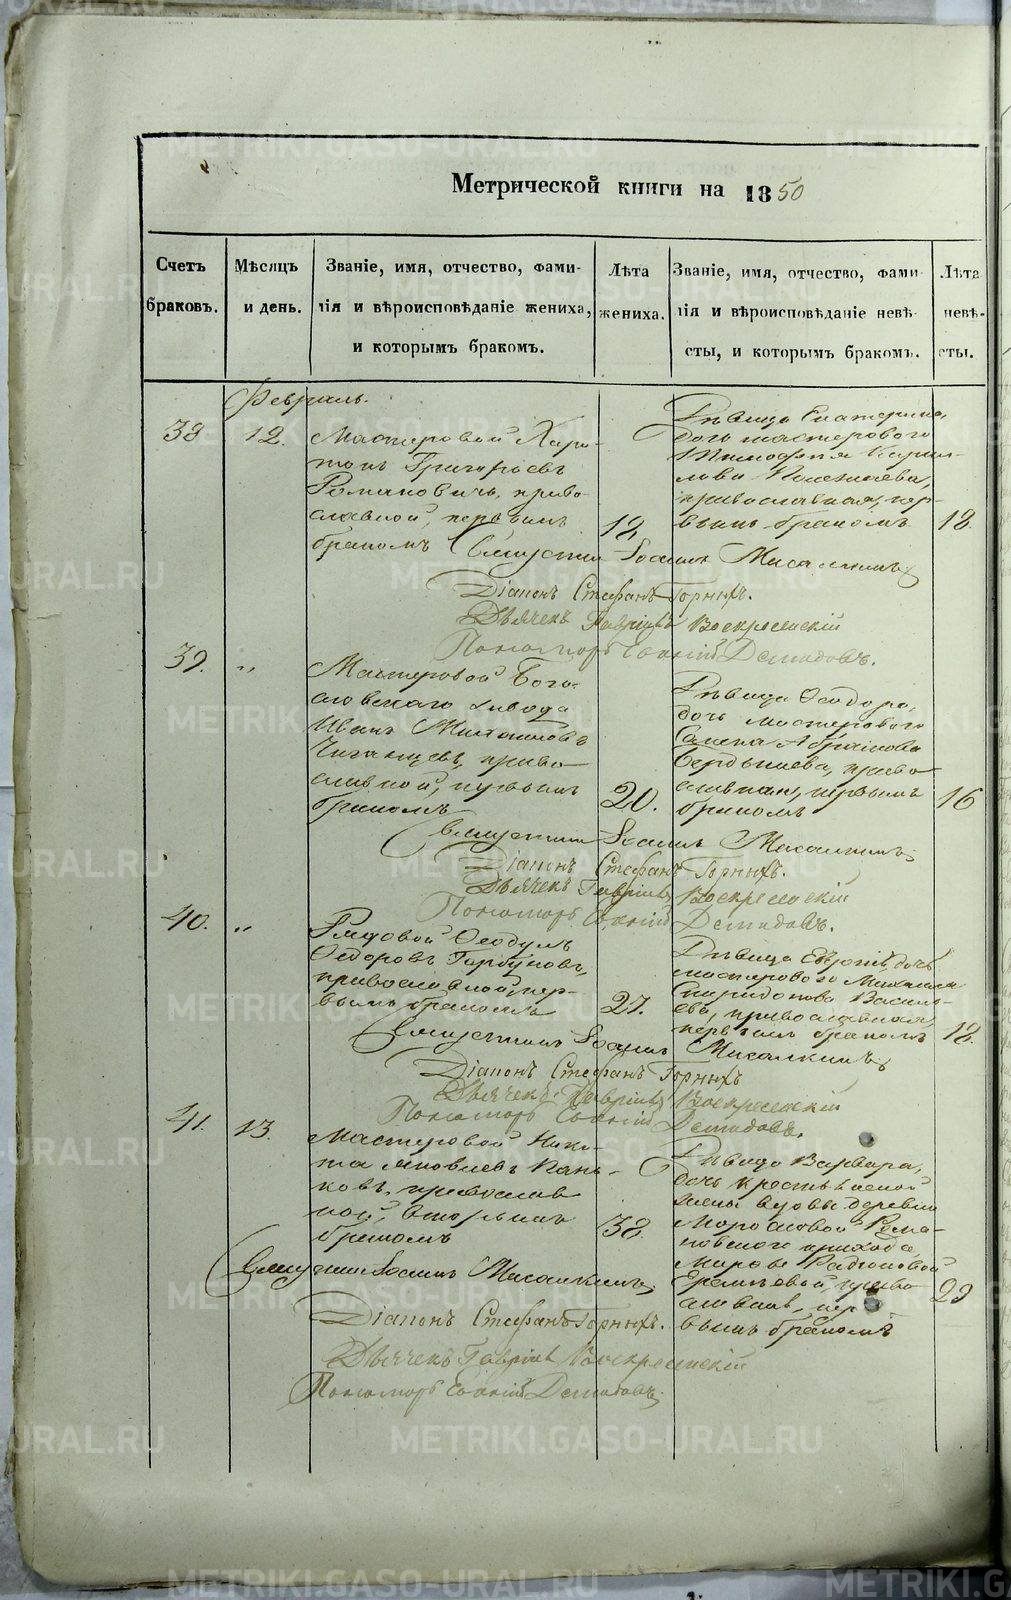 Метрической книги на 1850
Счетъ браковъ.
Мѣсяцъ и день.
Званіе, имя, отчество, фами-
лія и вѣроисповѣданіе жениха,
и которымъ бракомъ.
Лѣта жениха.
Званіе, имя, отчество, фами-
лія и вѣроисповѣданіе невѣ-
сты, и которымъ бракомъ.
Лѣта невѣ-
сты.
Февраль.
38
12.
Мастеровой Хари-
тонъ Григорьевъ
Романовичь, право-
славной, первымъ
бракомъ
18,
Дѣвица Екатерина,
дочь мастероваго
Тимофея Кирил-
лова
православная, пер-
вымъ бракомъ
18.
Священникъ Іоаннъ
Діаконъ Стефанъ Горныхъ.
Дьячекъ Гавріилъ Воскресенскій
Пономарь Демидовъ.
39.
"
Мастеровой Бого-
словскаго завода
Иванъ
право-
славной, первымъ
бракомъ
20.
Дѣвица Ѳеодора,
дочь мастероваго
Абрамова
Бердышева, право-
славная, первымъ
бракомъ
16
Священникъ Іоаннъ
Діаконъ Стефанъ Горныхъ.
Дьячекъ Гавріилъ Воскресенскій
Пономарь Демидовъ.
40.
"
Рядовой Ѳеодулъ
Ѳедоровъ Горбуновъ,
православной, пер-
вымъ бракомъ
27.
Дѣвица дочь
мастероваго Михаила
Спиридонова Василь-
ева, православная,
первымъ бракомъ
18.
Священникъ Іоаннъ
Діаконъ Стефанъ Горныхъ
Дьячекъ Гавріилъ Воскресенскій
Пономарь Демидовъ.
41.
13.
Мастеровой Ники-
та Яковлевъ Конь-
ковъ, православ-
ной, вторымъ
бракомъ
38.
Дѣвица Варвара,
дочь крестьянской
жены вдовы деревни
Рома-
новскаго прихода
Родіоновой
право-
славная, пер-
вымъ бракомъ
23
Священникъ Іоаннъ
Діаконъ Стефанъ Горныхъ.
Дьячекъ Гавріилъ Воскресенскій
Пономарь Демидовъ.
METRIKI.GASO-URAL.RU